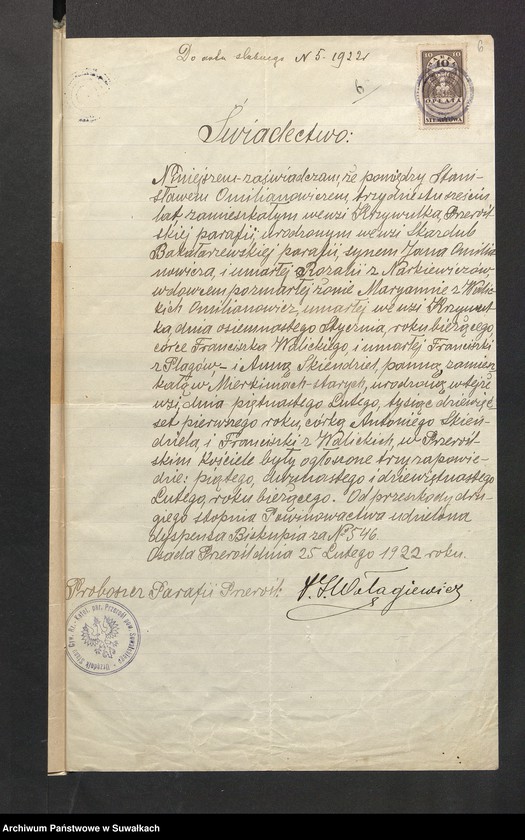 Do aktu ślubnego N 5-1922r
6
6
10 10
OPŁATA
STEMPLOWA
Świadectwo:
Niniejszem zaświadczam, że pomiędzy Stani-
sławem Omilianowiczem, trzydziestu sześciu
lat, zamieszkałym we wsi Krzywulka, Przeroś-
skiej parafji, urodzonym we wsi Skazdub
Bakałarzewskiej parafji, synem Jana Omilia-
nowicza, i umarłej Rozalii z Narkiewiczów
wdowcem po zmarłej żonie Maryannie z Walic-
kich Omilianowicz, umarłej we wsi Krzywul-
ka, dnia osiemnastego Stycznia, roku bieżącego,
córce Franciszka Walickiego, i umarłej Franciszki
z Plagów - i Anną Skiendziel, panną, zamiesz-
kałą w Mierkiniach starych, urodzoną w tejże
wsi, dnia piętnastego Lutego, tysiąc dziewięć-
set pierwszego roku, córką Antoniego Skien-
dziela, i Franciszki z Walickich, w Przeroś-
skim Kościele były ogłoszone trzy zapowie-
dzie: piątego, dwunastego i dziewiętnastego
Lutego, roku bieżącego. Od przeszkody dru-
giego stopnia Powinowactwa udzielona
dyspensa Biskupia za № 546.
Osada Przerośl dnia 25 Lutego 1922 roku.
Proboszcz Parafji Przerośl: X. S. Wołągiewicz
Archiwum Państwowe w Suwałkach